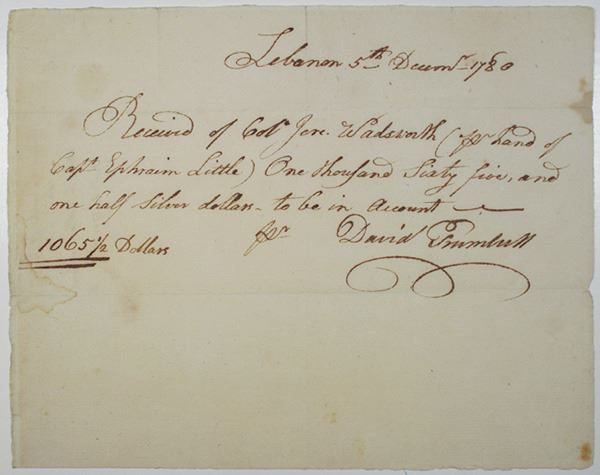 Lebanon 5th Decemr 1780
Received of Colo Jere. Wadsworth (pr hand of
Capt Ephraim Little) One thousand Sixty five, and
one half Silver dollars - to be in Account
1065 1/2 Dollars pr David Trumbull